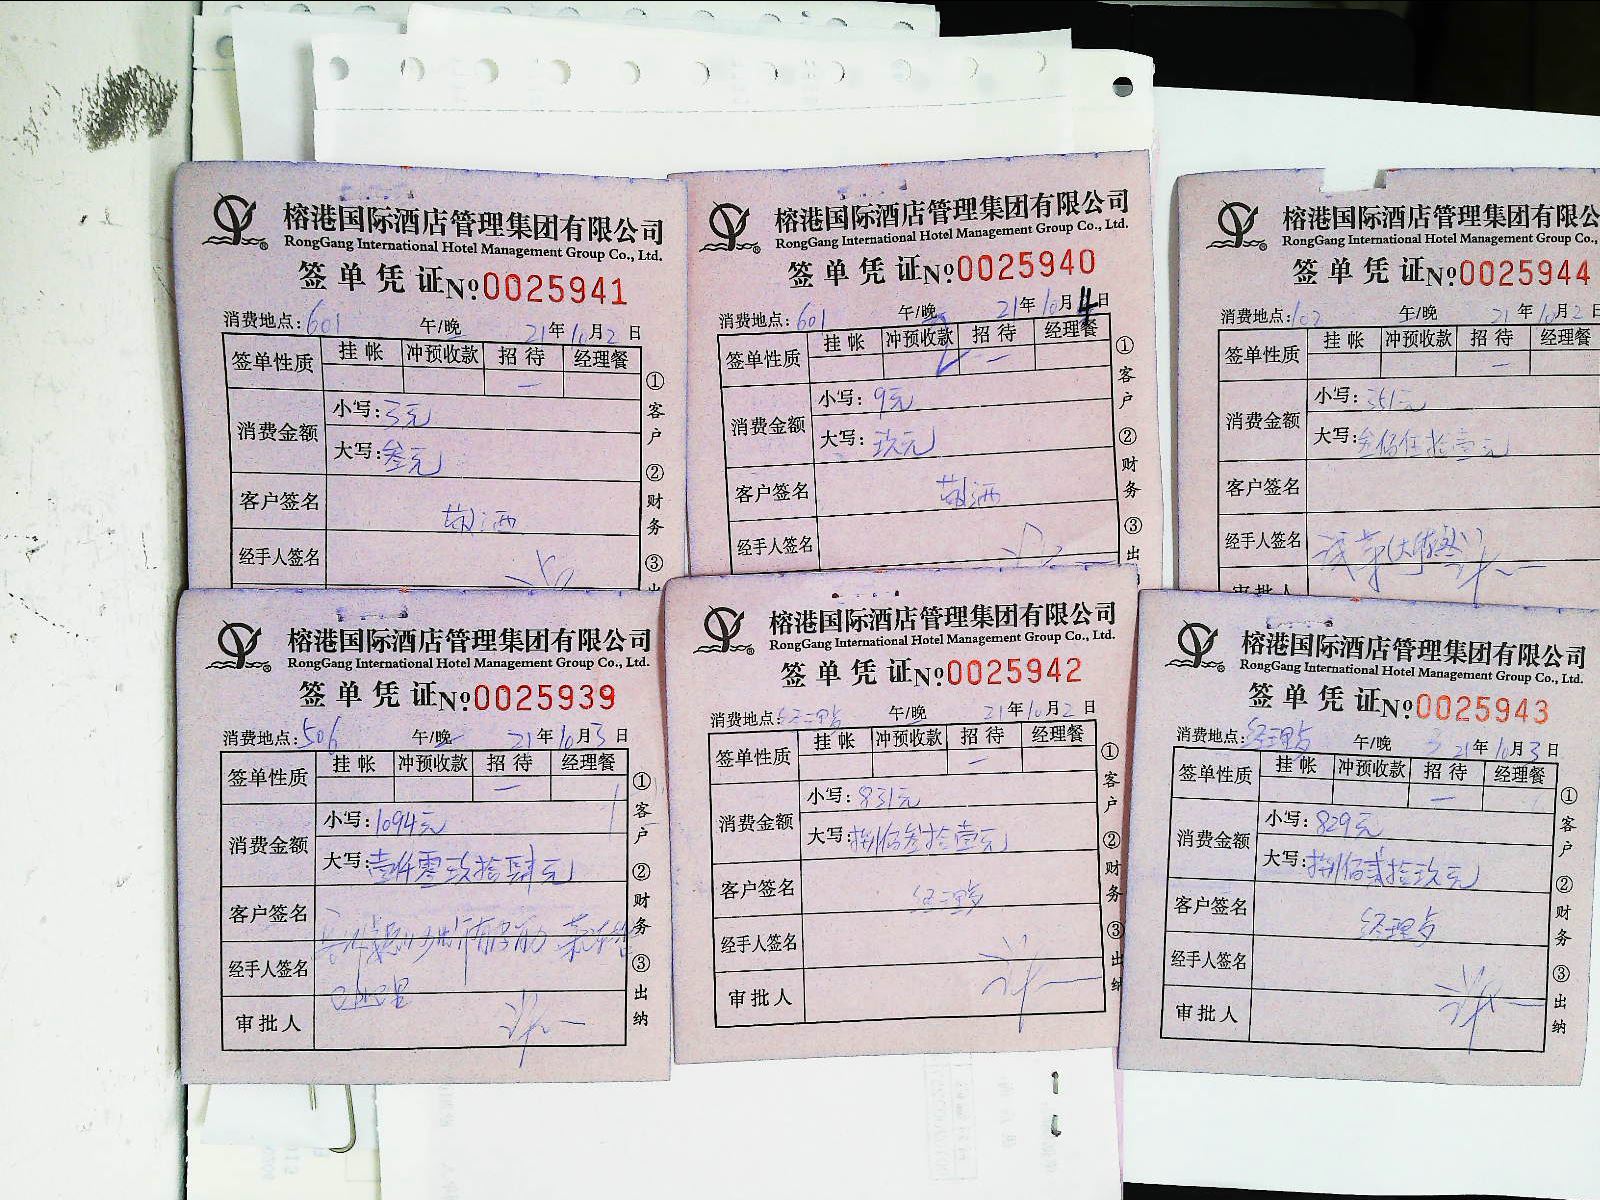 榕港国际酒店管理集团有限公司
RongGang International Hotel Management Group Co., Ltd.
签单凭证 №0025941
消费地点:601 午/晚 21年10月2日
签单性质 挂帐 冲预收款 招待 经理餐
消费金额 小写:3元
大写:叁元
客户签名
经手人签名
①客户 ②财务 ③出
榕港国际酒店管理集团有限公司
RongGang International Hotel Management Group Co., Ltd.
签单凭证 №0025940
消费地点:601 午/晚 21年10月4日
签单性质 挂帐 冲预收款 招待 经理餐
消费金额 小写:9元
大写:玖元
客户签名
经手人签名
①客户 ②财务 ③出
榕港国际酒店管理集团有限公
RongGang International Hotel Management Group Co.,
签单凭证 №0025944
消费地点:102 午/晚 21年10月2日
签单性质 挂帐 冲预收款 招待 经理餐
消费金额 小写:351元
大写:叁佰伍拾壹元
客户签名
经手人签名
审批人
榕港国际酒店管理集团有限公司
RongGang International Hotel Management Group Co., Ltd.
签单凭证 №0025939
消费地点:506 午/晚 21年10月3日
签单性质 挂帐 冲预收款 招待 经理餐
消费金额 小写:1094元
大写:壹仟零玖拾肆元
客户签名
经手人签名
审批人
①客户 ②财务 ③出纳
榕港国际酒店管理集团有限公司
RongGang International Hotel Management Group Co., Ltd.
签单凭证 №0025942
消费地点:经理房 午/晚 21年10月2日
签单性质 挂帐 冲预收款 招待 经理餐
消费金额 小写:831元
大写:捌佰叁拾壹元
客户签名
经手人签名
审批人
①客户 ②财务 ③出纳
榕港国际酒店管理集团有限公司
RongGang International Hotel Management Group Co., Ltd.
签单凭证 №0025943
消费地点:经理房 午/晚 21年10月3日
签单性质 挂帐 冲预收款 招待 经理餐
消费金额 小写:829元
大写:捌佰贰拾玖元
客户签名
经手人签名
审批人
①客户 ②财务 ③出纳